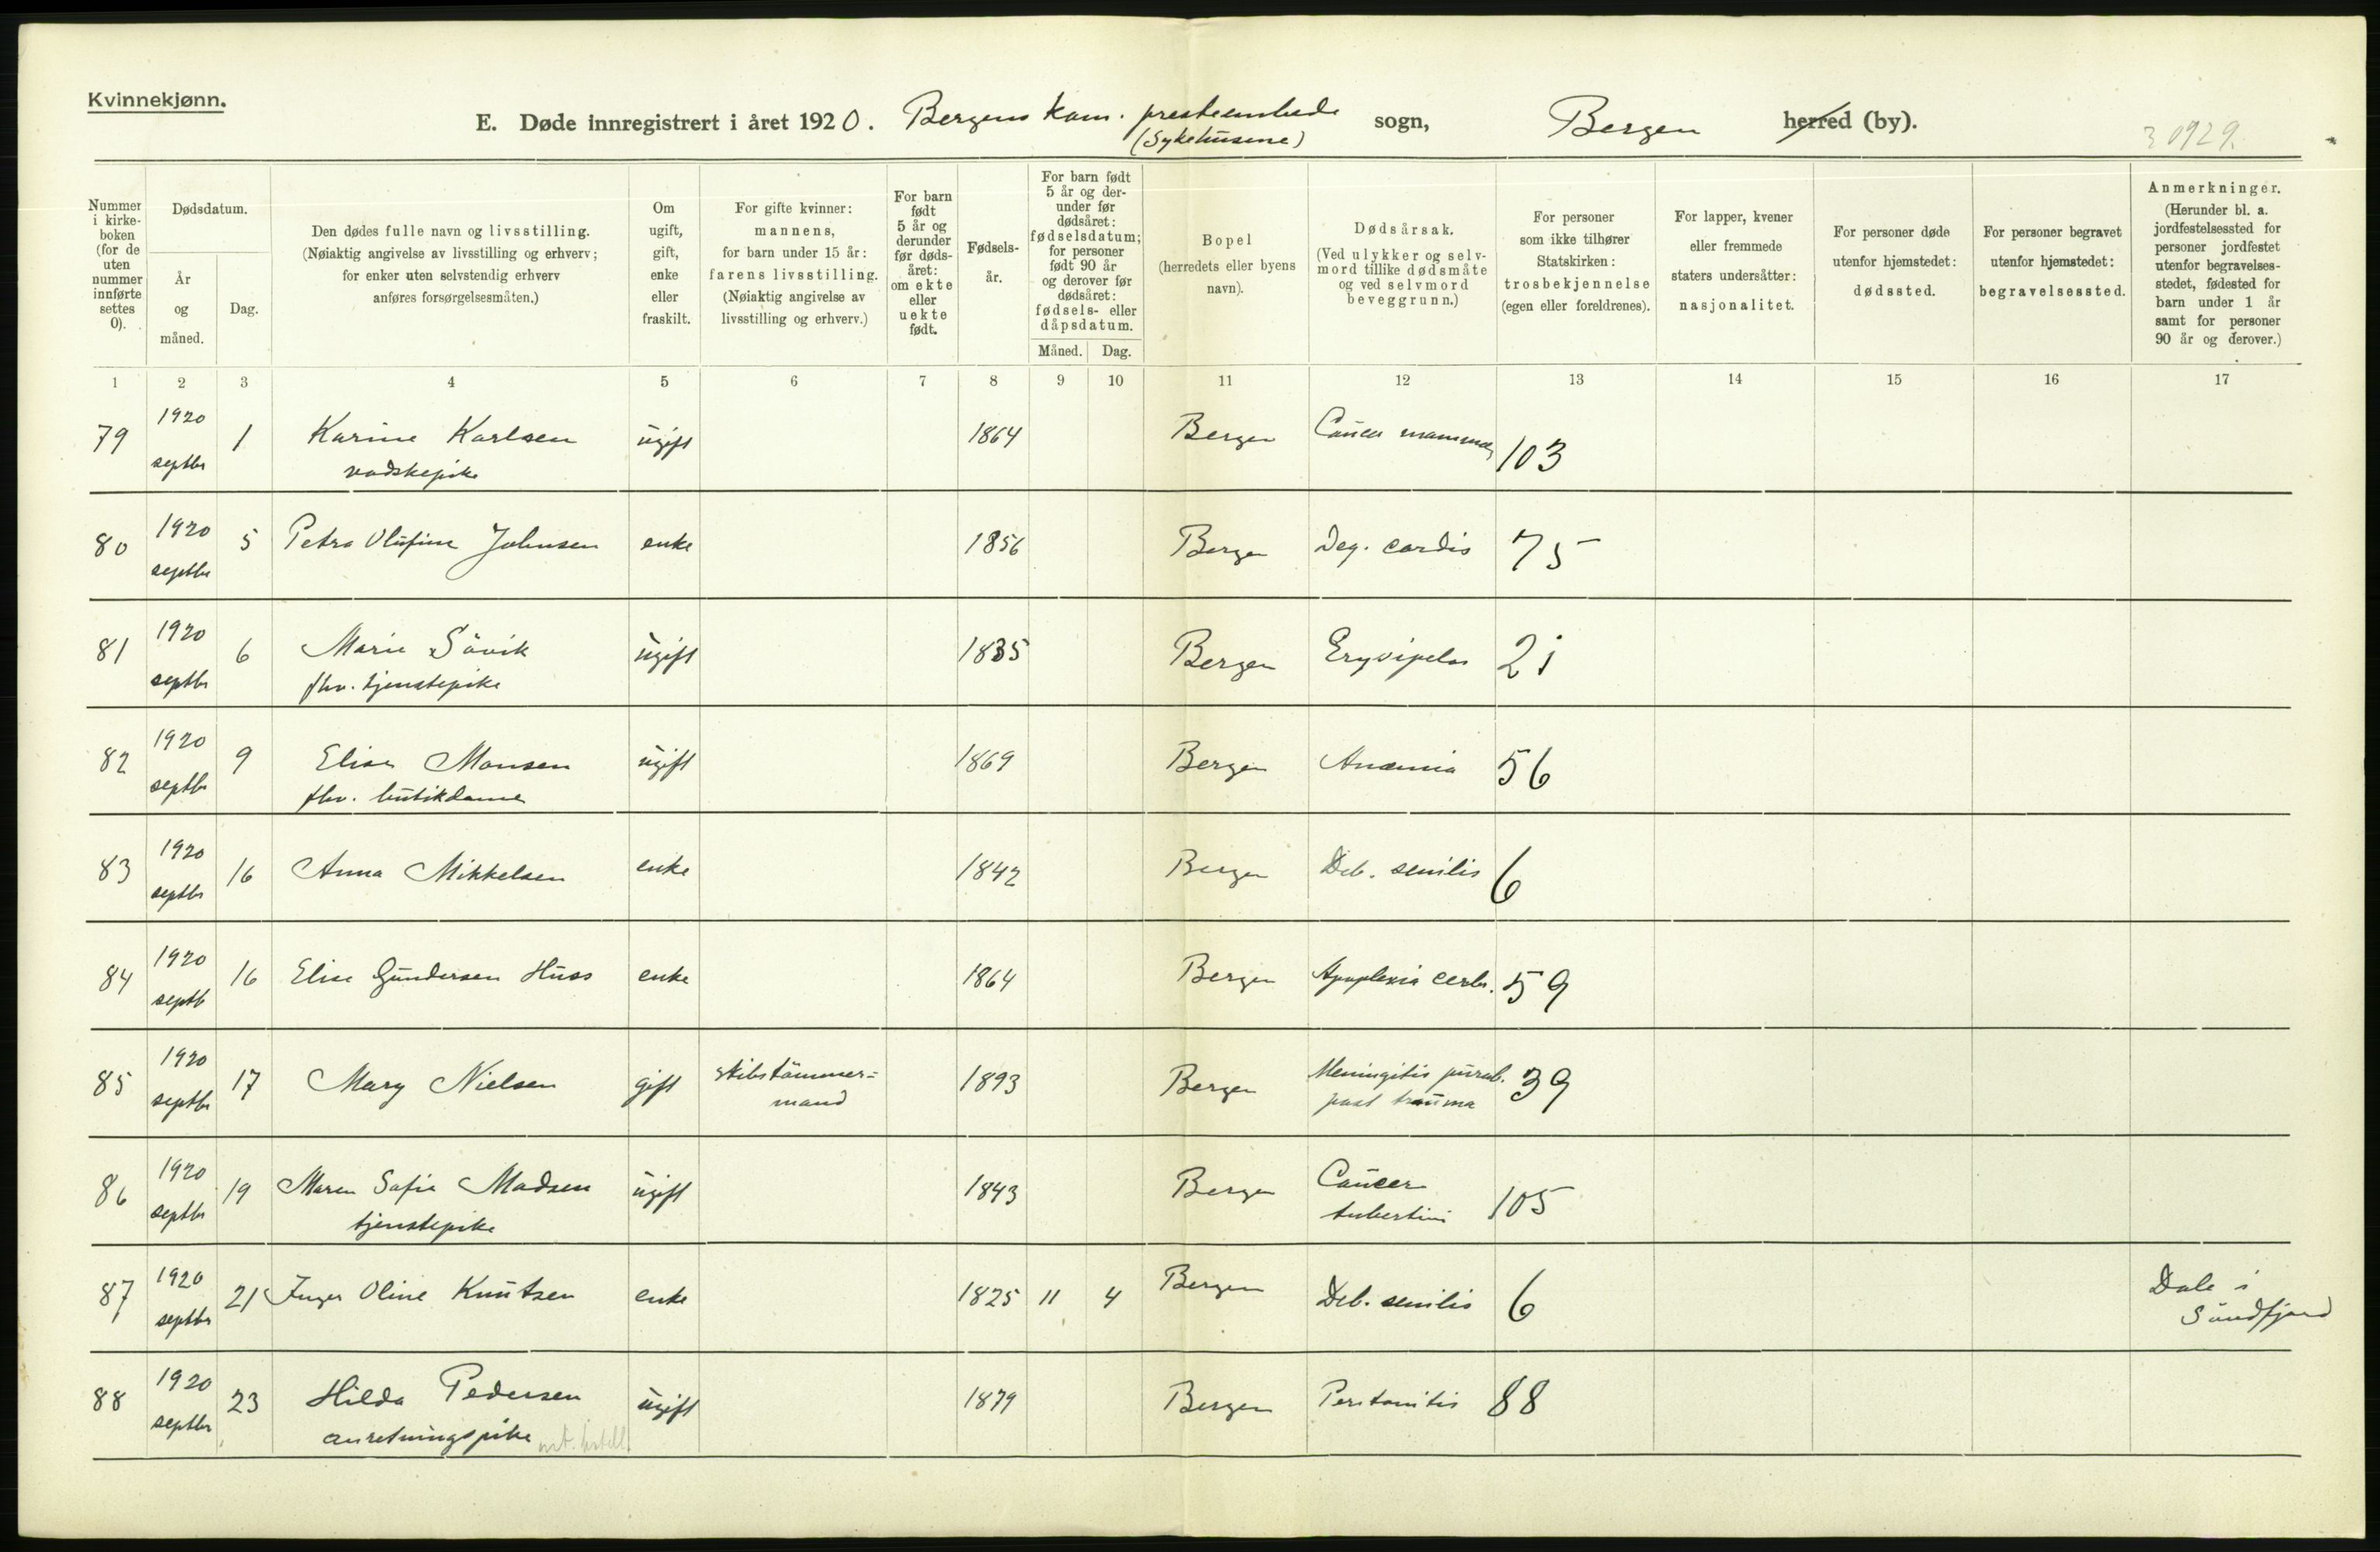 Kvinnekjønn.
E. Døde innregistrert i året 1920. Bergens kom. presteembede sogn, Bergen herred (by).
(Sykehusene)
30929.
Nummer i kirkeboken (for de uten nummer innførte settes 0).
Dødsdatum.
År og måned.
Dag.
Den dødes fulle navn og livsstilling.
(Nøiaktig angivelse av livsstilling og erhverv;
for enker uten selvstendig erhverv
anføres forsørgelsesmåten.)
Om ugift, gift, enke eller fraskilt.
For gifte kvinner:
mannens,
for barn under 15 år:
farens livsstilling.
(Nøiaktig angivelse av
livsstilling og erhverv.)
For barn født 5 år og derunder før dødsåret: om ekte eller uekte født.
Fødselsår.
For barn født 5 år og derunder før dødsåret: fødselsdatum; for personer født 90 år og derover før dødsåret: fødsels- eller dåpsdatum.
Måned.
Dag.
Bopel
(herredets eller byens
navn).
Dødsårsak.
(Ved ulykker og selvmord tillike dødsmåte og ved selvmord beveggrunn.)
For personer
som ikke tilhører
Statskirken:
trosbekjennelse
(egen eller foreldrenes).
For lapper, kvener
eller fremmede
staters undersåtter:
nasjonalitet.
For personer døde
utenfor hjemstedet:
dødssted.
For personer begravet
utenfor hjemstedet:
begravelsessted.
Anmerkninger.
(Herunder bl. a.
jordfestelsessted for
personer jordfestet
utenfor begravelses-
stedet, fødested for
barn under 1 år
samt for personer
90 år og derover.)
1 2 3 4 5 6 7 8 9 10 11 12 13 14 15 16 17
79 1920 septbr 1 Karine Karlsen ugift 1864 Bergen Cancer mammae 103
vadskepike
80 1920 septbr 5 Petra Olufine Johnsen enke 1856 Bergen Deg. cordis 75
81 1920 septbr 6 Marie Søvik ugift 1835 Bergen Erysipelas 21
fhv. tjenstepike
82 1920 septbr 9 Elise Monsen ugift 1869 Bergen Anæmia 56
fhv. butikdame
83 1920 septbr 16 Anna Mikkelsen enke 1842 Bergen Deb. senilis 6
84 1920 septb 16 Elise Gundersen Huss enke 1864 Bergen Apoplexia cerbr. 59
85 1920 septbr 17 Mary Nielsen gift skibstömmer= 1893 Bergen Meningitis purul. 39
mand post trauma
86 1920 septbr 19 Maren Sofie Madsen ugift 1843 Bergen Cancer 105
tjenstepike
87 1920 septbr 21 Inger Oline Knutsen enke 1825 11 4 Bergen Deb. senilis 6 Dale i
Söndfjord
88 1920 septbr 23 Hilda Pedersen ugift 1879 Bergen Peritonitis 88
anretningspike